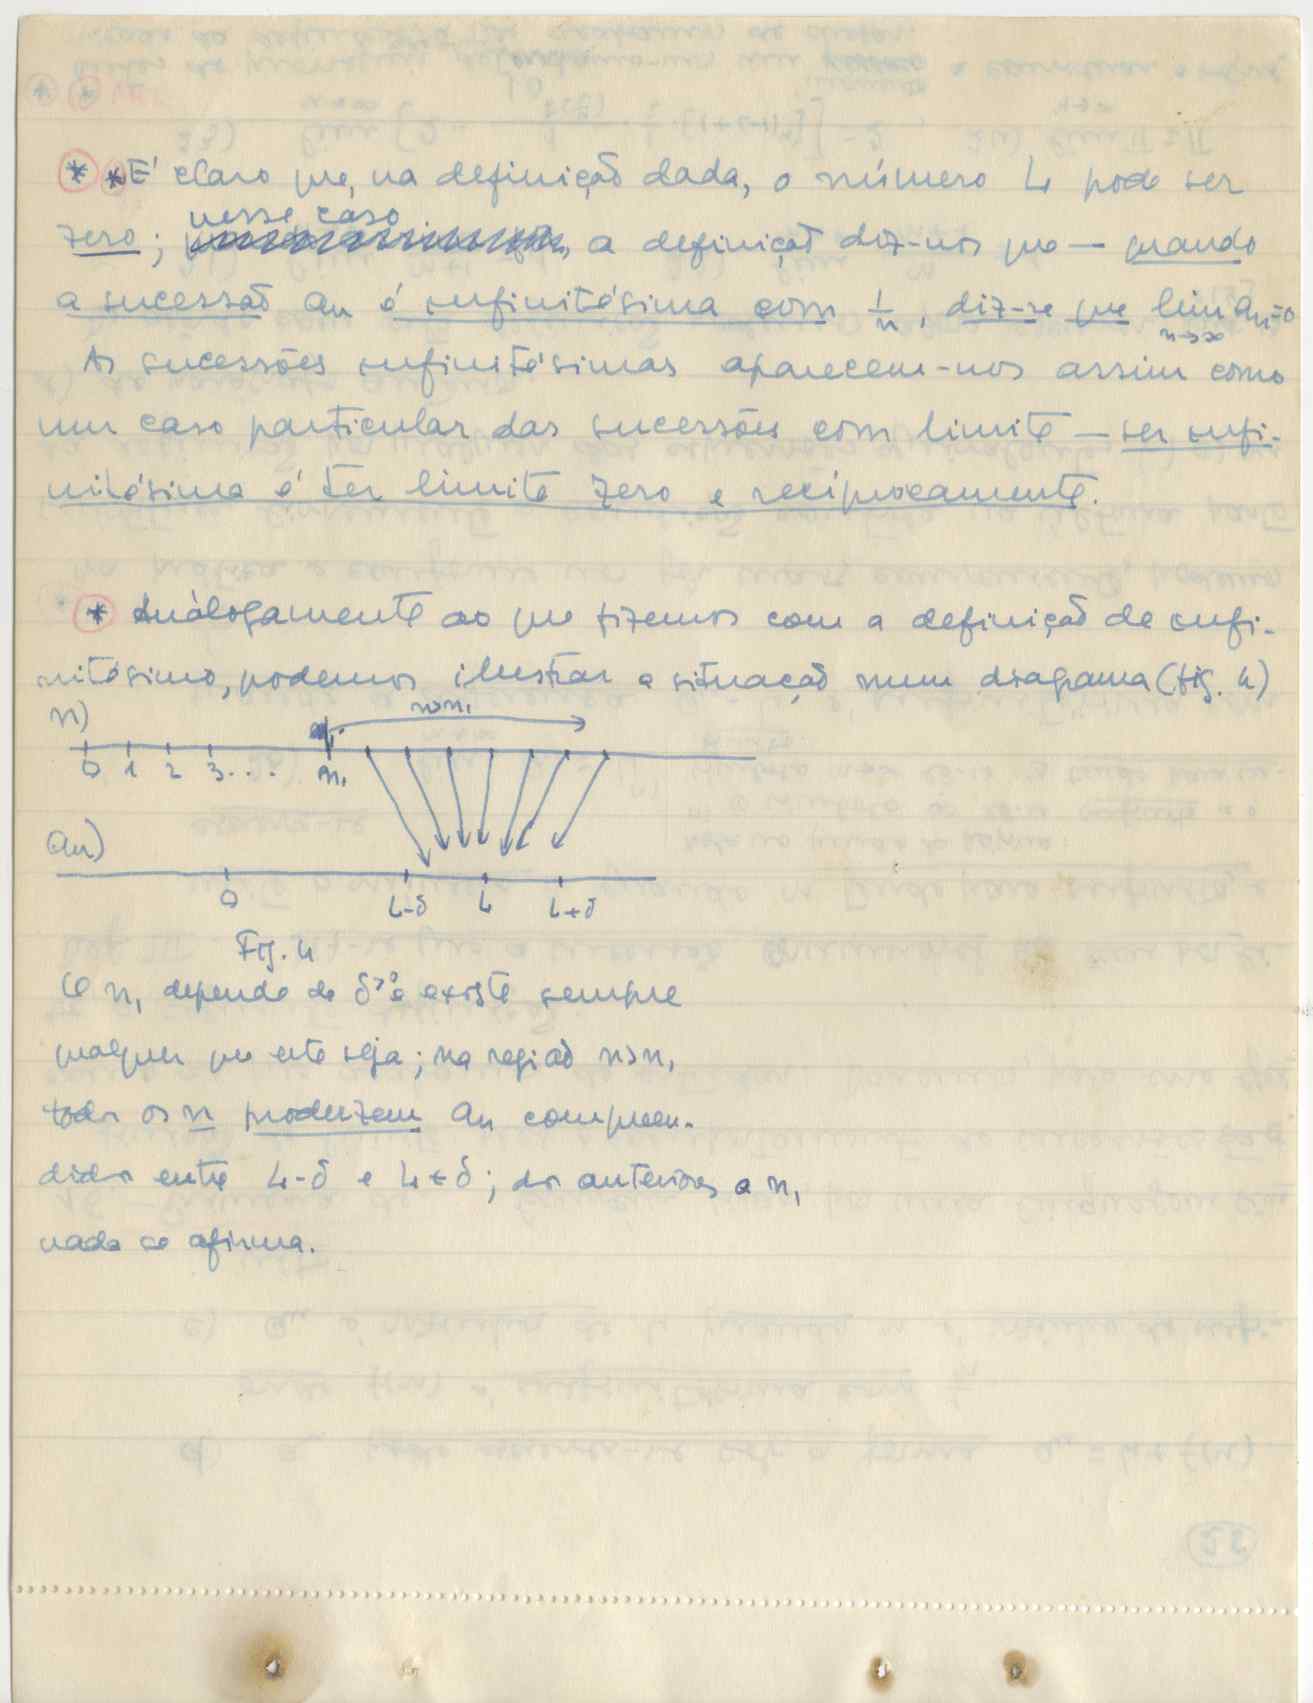 * * É claro que, na definição dada, o número L pode ser
nesse caso
zero; a definição diz-nos que — quando
a sucessão an é infinitésima com 1/n, diz-se que lim an=0
n→∞
As sucessões infinitésimas aparecem-nos assim como
um caso particular das sucessões com limite — ser infi-
nitésima é ter limite zero e recíprocamente.
* Análogamente ao que fizemos com a definição de infi-
nitésimo, podemos ilustrar a situação num diagrama (fig. 4)
n)
n>n₁
0 1 2 3 . . . n₁
an)
0 L-δ L L+δ
Fig. 4
O n₁ depende de δ>0 e existe sempre
qualquer que este seja; na região n>n₁
todos os n produzem an compreen-
didos entre L-δ e L+δ; dos anteriores a n₁
nada se afirma.